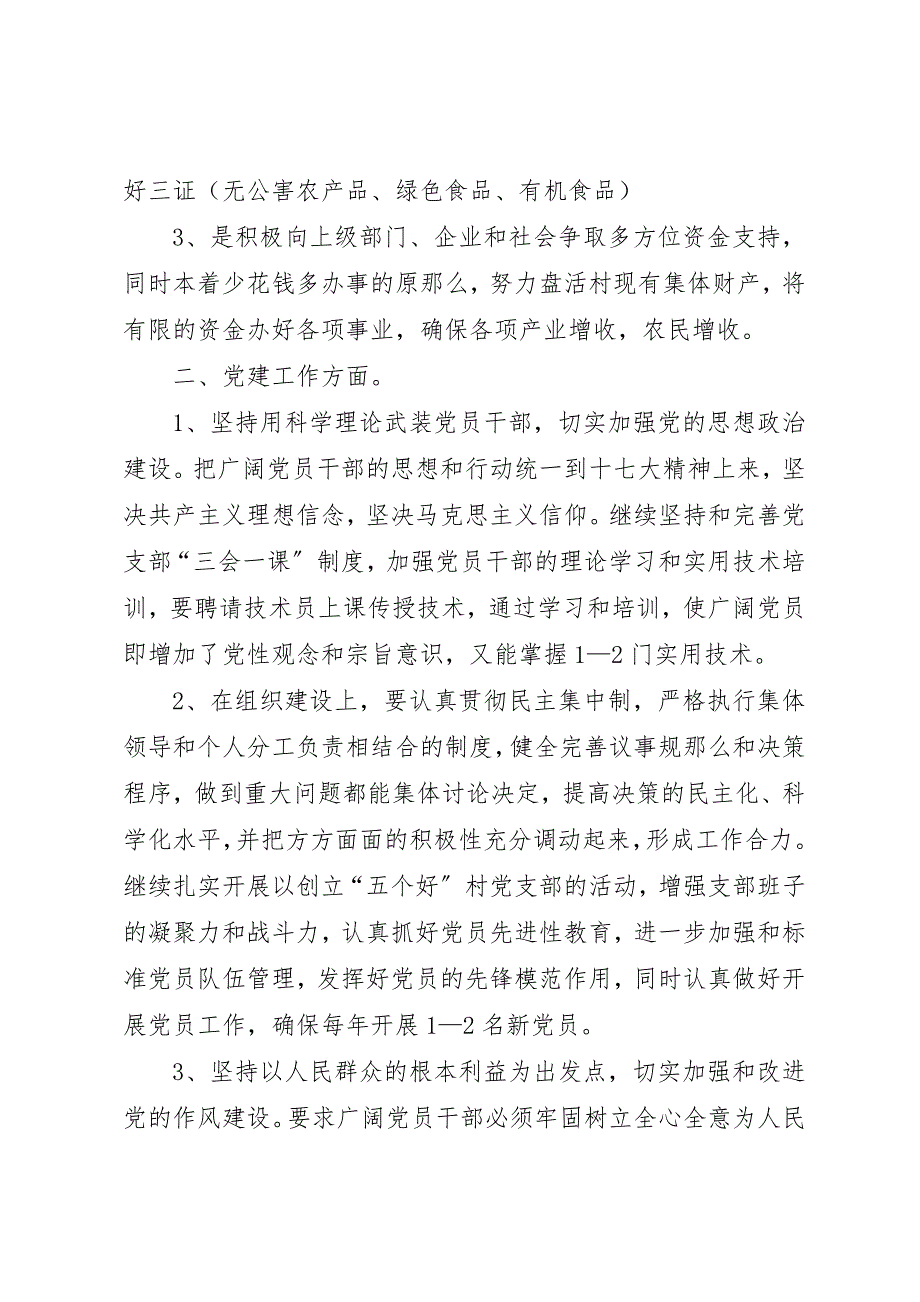 好三证（无公害农产品、绿色食品、有机食品）
3、是积极向上级部门、企业和社会争取多方位资金支持，
同时本着少花钱多办事的原那么，努力盘活村现有集体财产，将
有限的资金办好各项事业，确保各项产业增收，农民增收。
二、党建工作方面。
1、坚持用科学理论武装党员干部，切实加强党的思想政治
建设。把广阔党员干部的思想和行动统一到十七大精神上来，坚
决共产主义理想信念，坚决马克思主义信仰。继续坚持和完善党
支部“三会一课〞制度，加强党员干部的理论学习和实用技术培
训，要聘请技术员上课传授技术，通过学习和培训，使广阔党员
即增加了党性观念和宗旨意识，又能掌握1—2门实用技术。
2、在组织建设上，要认真贯彻民主集中制，严格执行集体
领导和个人分工负责相结合的制度，健全完善议事规那么和决策
程序，做到重大问题都能集体讨论决定，提高决策的民主化、科
学化水平，并把方方面面的积极性充分调动起来，形成工作合力。
继续扎实开展以创立“五个好〞村党支部的活动，增强支部班子
的凝聚力和战斗力，认真抓好党员先进性教育，进一步加强和标
准党员队伍管理，发挥好党员的先锋模范作用，同时认真做好开
展党员工作，确保每年开展1—2名新党员。
3、坚持以人民群众的根本利益为出发点，切实加强和改进
党的作风建设。要求广阔党员干部必须牢固树立全心全意为人民